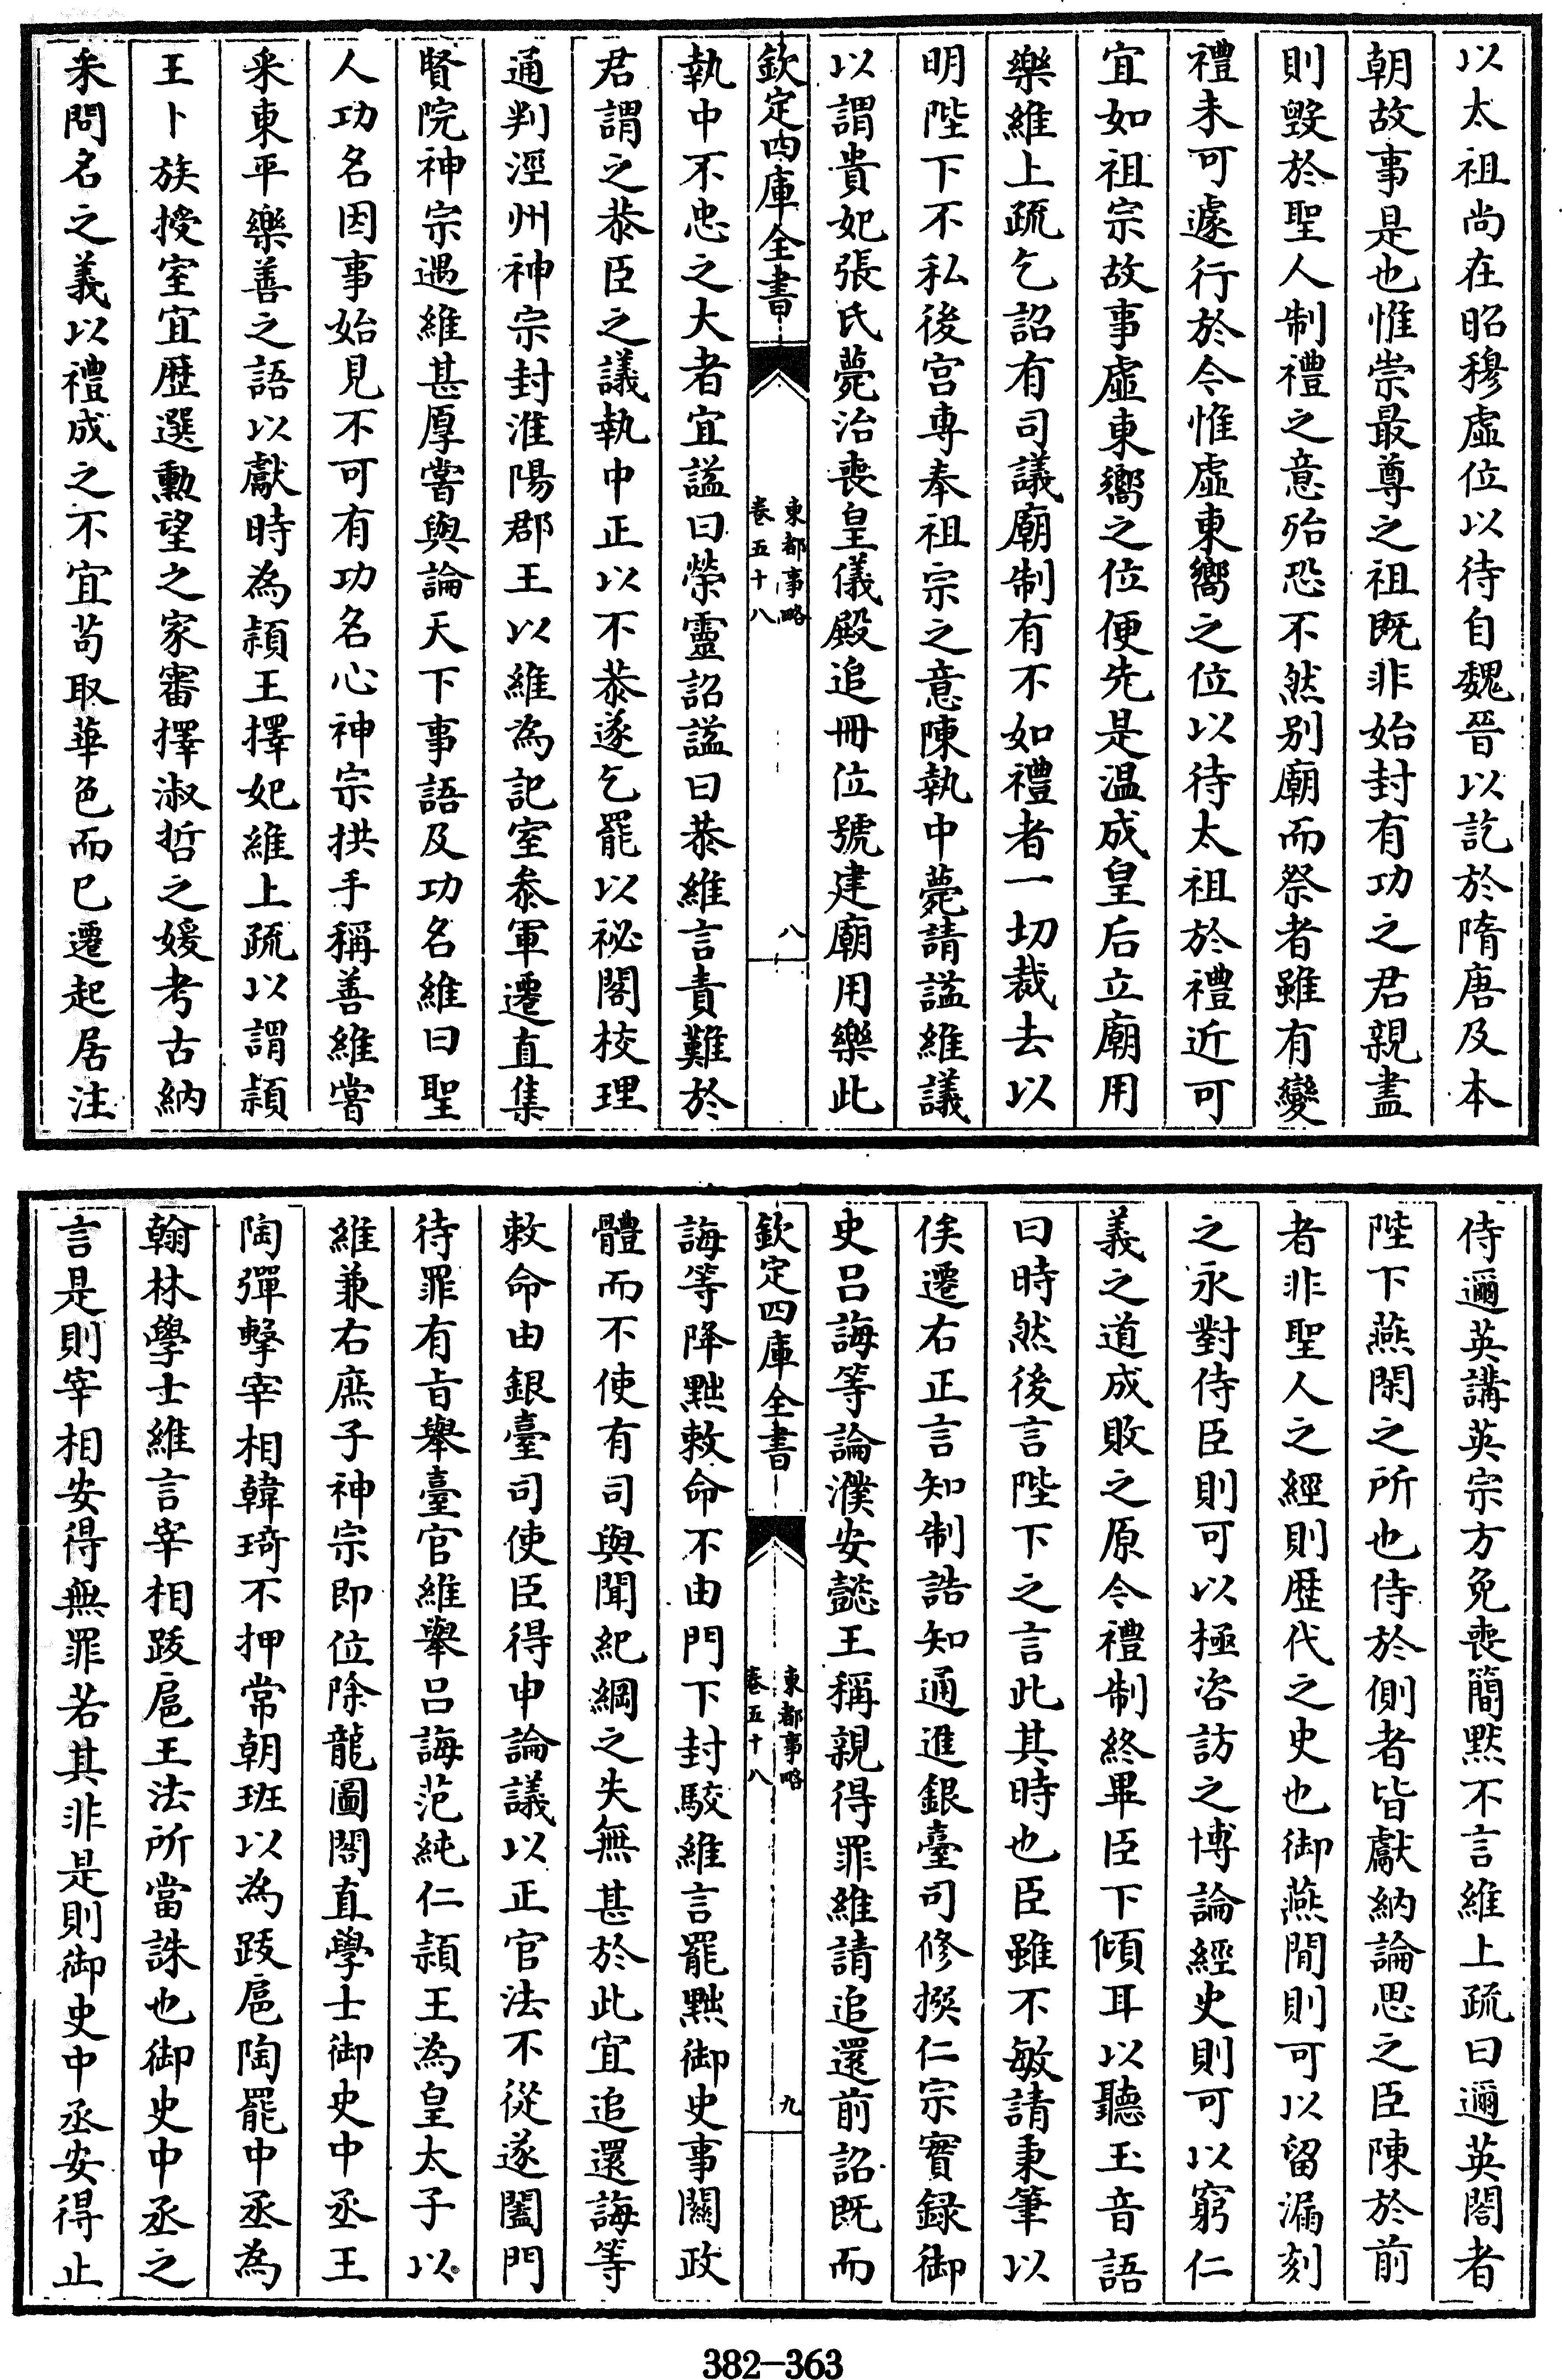 以太祖尚在昭穆虛位以待自魏晉以訖於隋唐及本
朝故事是也惟崇最尊之祖既非始封有功之君親盡
則毀於聖人制禮之意殆恐不然别廟而祭者雖有變
禮未可遽行於今惟虛東嚮之位以待太祖於禮近可
宜如祖宗故事虛東嚮之位便先是温成皇后立廟用
樂維上疏乞詔有司議廟制有不如禮者一切裁去以
明陛下不私後宫専奉祖宗之意陳執中薨請諡維議
以謂貴妃張氏薨治喪皇儀殿追冊位號建廟用樂此
欽定四庫全書
東都事略
卷五十八
八
執中不忠之大者宜諡曰榮靈詔諡曰恭維言責難於
君謂之恭臣之議執中正以不恭遂乞罷以祕閣校理
通判涇州神宗封淮陽郡王以維為記室叅軍遷直集
賢院神宗遇維甚厚嘗與論天下事語及功名維曰聖
人功名因事始見不可有功名心神宗拱手稱善維嘗
采東平樂善之語以獻時為頴王擇妃維上疏以謂頴
王卜族授室宜歴選勲望之家審擇淑哲之媛考古納
采問名之義以禮成之不宜苟取華色而已遷起居注
侍邇英講英宗方免喪簡黙不言維上疏曰邇英閣者
陛下燕閑之所也侍於側者皆獻納論思之臣陳於前
者非聖人之經則歴代之史也御燕閒則可以留漏刻
之永對侍臣則可以極咨訪之博論經史則可以窮仁
義之道成敗之原今禮制終畢臣下傾耳以聽玉音語
曰時然後言陛下之言此其時也臣雖不敏請秉筆以
俟遷右正言知制誥知通進銀臺司修撰仁宗實録御
史吕誨等論濮安懿王稱親得罪維請追還前詔既而
欽定四庫全書
東都事略
卷五十八
九
誨等降黜敕命不由門下封駮維言罷黜御史事關政
體而不使有司與聞紀綱之失無甚於此宜追還誨等
敕命由銀臺司使臣得申論議以正官法不從遂闔門
待罪有㫖舉臺官維舉吕誨范純仁頴王為皇太子以
維兼右庶子神宗即位除龍圖閣直學士御史中丞王
陶彈擊宰相韓琦不押常朝班以為跋扈陶罷中丞為
翰林學士維言宰相跋扈王法所當誅也御史中丞之
言是則宰相安得無罪若其非是則御史中丞安得止
382-363